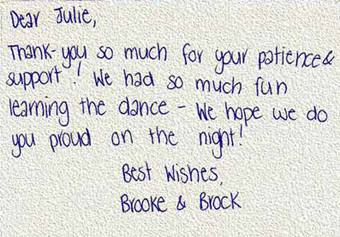 Dear Julie,
Thank-you so much for your patience &
support! We had so much fun
learning the dance - We hope we do
you proud on the night!
Best Wishes,
Brooke & Brock